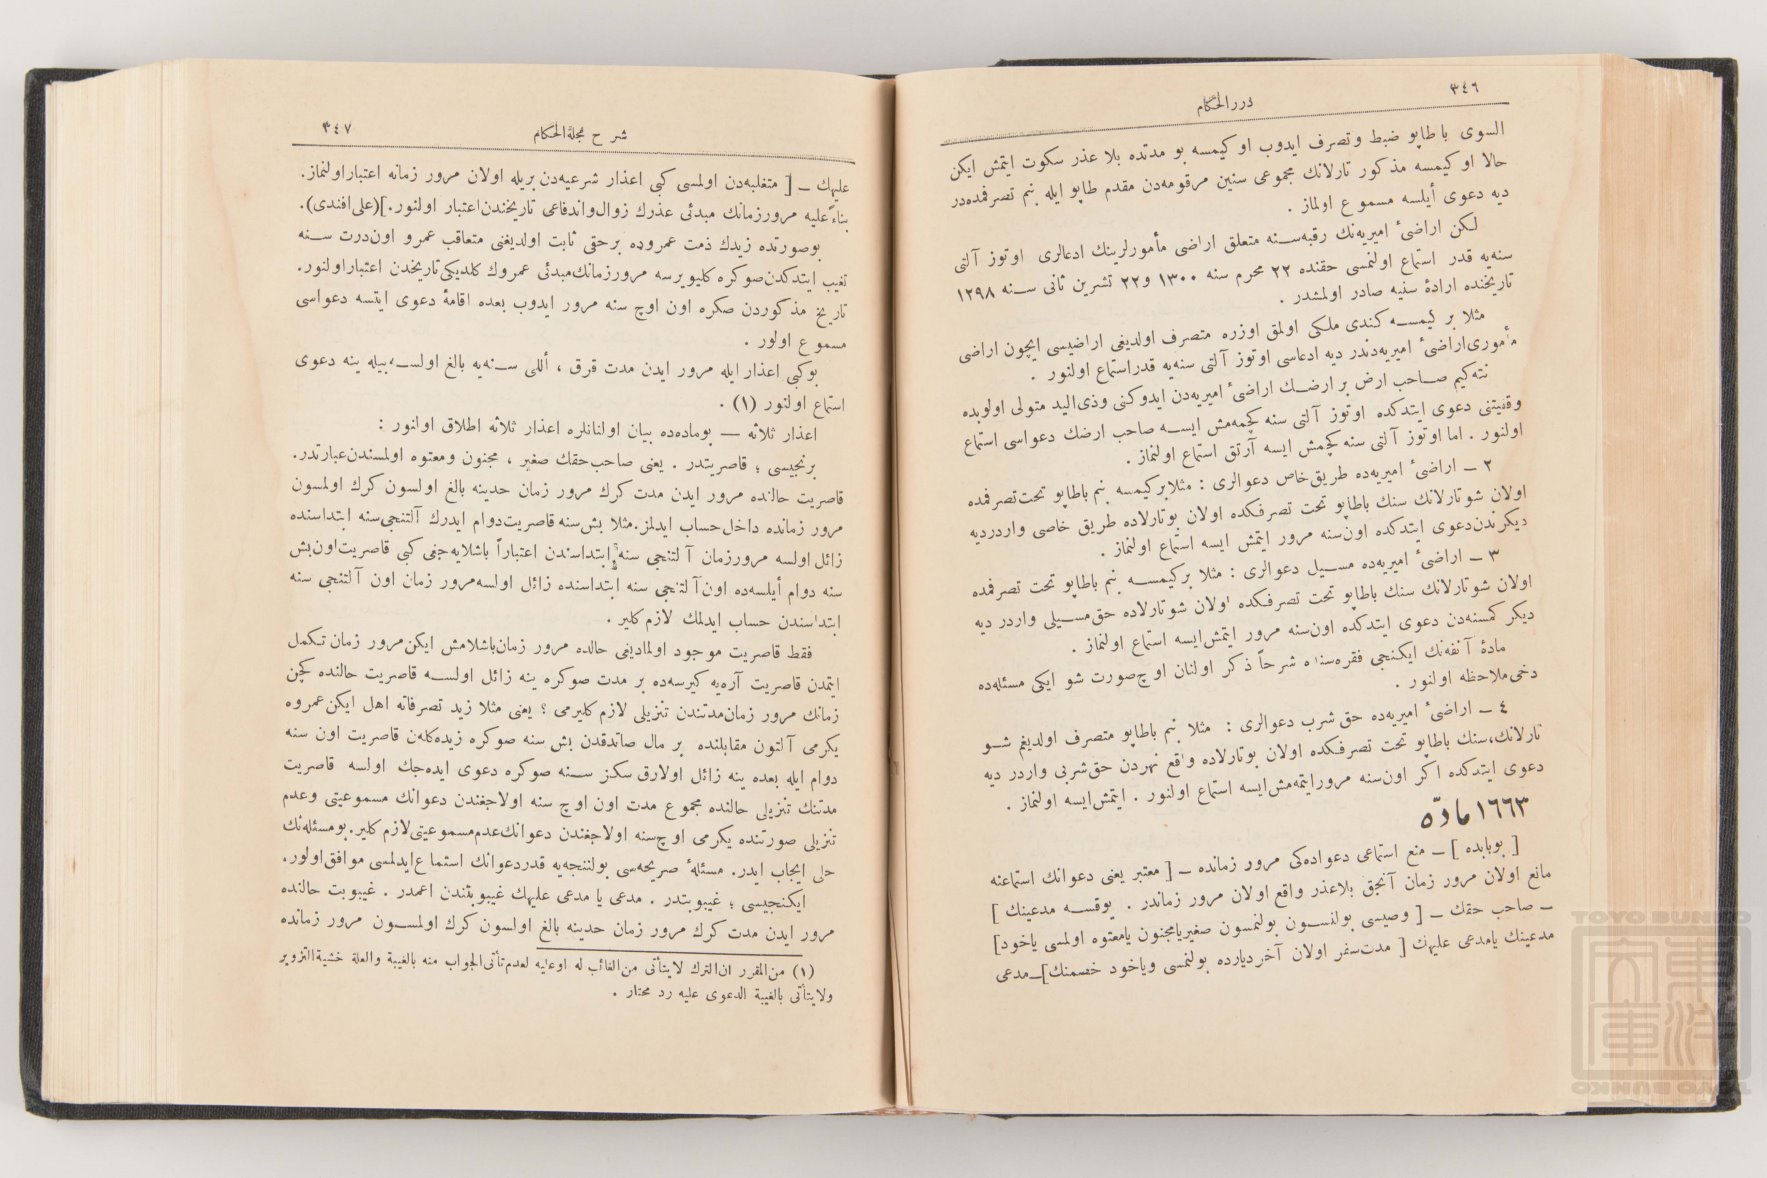 ٣٤٦
درر الحكام
السوى باطاپو ضبط وتصرف ايدوب اوكيمسه بو مدتده بلا عذر سكوت ايتمش ايكن
حالا اوكيمسه مذكور تارلانك مجموعى سنين مرقومه‌دن مقدم طاپو ايله بنم تصرفمده‌در
ديه دعوى أيلسه مسموع اولماز .
لكن اراضئ اميريه‌نك رقبه‌سنه متعلق اراضى مأمورلرينك ادعالرى اوتوز آلتى
سنه‌يه قدر استماع اولنمسى حقنده ٢٢ محرم سنه ١٣٠٠ و٢٢ تشرين ثانى سنه ١٢٩٨
تاريخنده ارادۀ سنيه صادر اولمشدر .
مثلا بر كيمسه كندى ملكى اولمق اوزره متصرف اولديغى اراضيسى ايچون اراضى
مأمورى‌اراضئ اميريه‌دندر ديه ادعاسى اوتوز آلتى سنه‌يه قدراستماع اولنور .
نته‌كيم صاحب ارض بر ارضك اراضئ اميريه‌دن ايدوكنى وذى‌اليد متولى اولوبده
وقفيتنى دعوى ايتدكده اوتوز آلتى سنه كچمه‌مش ايسه صاحب ارضك دعواسى استماع
اولنور . اما اوتوز آلتى سنه كچمش ايسه آرتق استماع اولنماز .
٢ ــ اراضئ اميريه‌ده طريق‌خاص دعوالرى : مثلابركيمسه بنم باطاپو تحت‌تصرفمده
اولان شوتارلانك سنك باطاپو تحت تصرفكده اولان بوتارلاده طريق خاصى واردرديه
ديكرندن‌دعوى ايتدكده اون‌سنه مرور ايتمش ايسه استماع اولنماز .
٣ ــ اراضئ اميريه‌ده مسيل دعوالرى : مثلا بركيمسه بنم باطاپو تحت تصرفمده
اولان شوتارلانك سنك باطاپو تحت تصرفكده اولان شوتارلاده حق‌مسيلى واردر ديه
ديكر كمسنه‌دن دعوى ايتدكده اون‌سنه مرور ايتمش‌ايسه استماع اولنماز .
مادۀ آنفه‌نك ايكنجى فقره‌سنده شرحاً ذكر اولنان اوچ‌صورت شو ايكى مسئله‌ده
دخى‌ملاحظه اولنور .
٤ ــ اراضئ اميريه‌ده حق شرب دعوالرى : مثلا بنم باطاپو متصرف اولديغم شو
تارلانك،سنك باطاپو تحت تصرفكده اولان بوتارلاده واقع نهردن حق‌شربى واردر ديه
دعوى ايتدكده اكر اون‌سنه مرورايتمه‌مش‌ايسه استماع اولنور . ايتمش‌ايسه اولنماز .
١٦٦٣ مادّه
[ بوبابده ] ــ منع استماعى دعواده‌كى مرور زمانده ــ [ معتبر يعنى دعوانك استماعنه
مانع اولان مرور زمان آنجق بلاعذر واقع اولان مرور زماندر . يوقسه مدعينك ]
ــ صاحب حقك ــ [ وصيسى بولنسون بولنمسون صغيريامجنون يامعتوه اولمسى ياخود]
مدعينك يامدعى عليهك [ مدت‌سفر اولان آخرديارده بولنمسى وياخود خصمنك]ــ‌مدعى
٣٤٧
شرح مجلة الحكام
عليهك ــ [ متغلبه‌دن اولمسى كبى اعذار شرعيه‌دن‌بريله اولان مرور زمانه اعتباراولنماز.
بناءً‌عليه مرورزمانك مبدئى عذرك زوال‌واندفاعى تاريخندن‌اعتبار اولنور.](على‌افندى).
بوصورتده زيدك ذمت عمروده برحقى ثابت اولديغنى متعاقب عمرو اون‌درت سنه
تغيب ايتدكدن‌صوكره كليويرسه مرورزمانك‌مبدئى عمروك كلديكى‌تاريخدن اعتباراولنور.
تاريخ مذكوردن صكره اون اوچ سنه مرور ايدوب بعده اقامۀ دعوى ايتسه دعواسى
مسموع اولور .
بوكبى اعذار ايله مرور ايدن مدت قرق ، أللى سنه‌يه بالغ اولسه‌بيله ينه دعوى
استماع اولنور (١) .
اعذار ثلاثه ــ بوماده‌ده بيان اولنانلره اعذار ثلاثه اطلاق اولنور :
برنجيسى ؛ قاصريتدر . يعنى صاحب‌حقك صغير ، مجنون ومعتوه اولمسندن‌عبارتدر.
قاصريت حالنده مرور ايدن مدت كرك مرور زمان حدينه بالغ اولسون كرك اولمسون
مرور زمانده داخل‌حساب ايدلمز.مثلا بش‌سنه قاصريت‌دوام ايدرك آلتنجى‌سنه ابتداسنده
زائل اولسه مرورزمان آلتنجى سنه ابتداسندن اعتباراً باشلايه‌جغى كبى قاصريت‌اون‌بش
سنه دوام أيلسه‌ده اون‌آلتنجى سنه ابتداسنده زائل اولسه‌مرور زمان اون آلتنجى سنه
ابتداسندن حساب ايدلمك لازم‌كلير .
فقط قاصريت موجود اولماديغى حالده مرور زمان‌باشلامش ايكن‌مرور زمان تكمل
ايتمدن قاصريت آره‌يه كيرسه‌ده بر مدت صوكره ينه زائل اولسه قاصريت حالنده كچن
زمانك مرور زمان‌مدتندن تنزيلى لازم كليرمى ؟ يعنى مثلا زيد تصرفاته اهل ايكن‌عمروه
يكرمى آلتون مقابلنده بر مال صاتدقدن بش سنه صوكره زيده‌كلن قاصريت اون سنه
دوام ايله بعده ينه زائل اولارق سكز سنه صوكره دعوى ايده‌جك اولسه قاصريت
مدتنك تنزيلى حالنده مجموع مدت اون اوچ سنه اولاجغندن دعوانك مسموعيتى وعدم
تنزيلى صورتنده يكرمى اوچ‌سنه اولاجغندن دعوانك‌عدم‌مسموعيتى‌لازم كلير.بومسئله‌نك
حلى ايجاب ايدر. مسئلۀ صريحه‌سى بولننجه‌يه قدردعوانك استماع‌ايدلمسى موافق‌اولور.
ايكنجيسى ؛ غيبوبتدر . مدعى يا مدعى عليهك غيبوبتندن اعمدر . غيبوبت حالنده
مرور ايدن مدت كرك مرور زمان حدينه بالغ اولسون كرك اولمسون مرور زمانده
(١) من‌المقرر ان‌الترك لايتأتى من‌الغائب له اوعليه لعدم‌تأتى‌الجواب منه بالغيبة والعلة خشية‌التزوير
ولايتأتى بالغيبة الدعوى عليه رد محتار .
TOYO BUNKO
東洋文庫
TOYO BUNKO